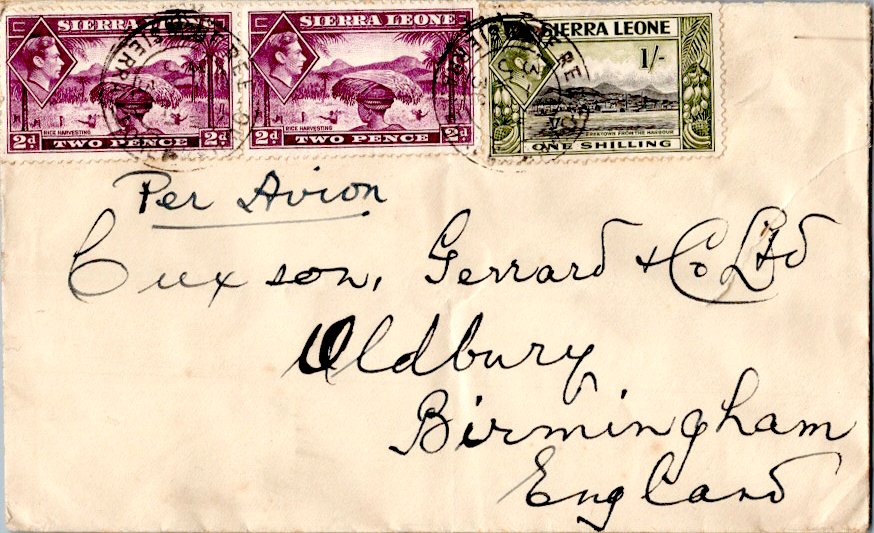 SIERRA LEONE
RICE HARVESTING
2d. TWO PENCE 2d.
SIERRA LEONE
RICE HARVESTING
2d. TWO PENCE 2d.
SIERRA LEONE
1/-
FREETOWN FROM THE HARBOUR
ONE SHILLING
Per Avion
Cuxson, Gerrard & Co Ltd
Oldbury
Birmingham
England